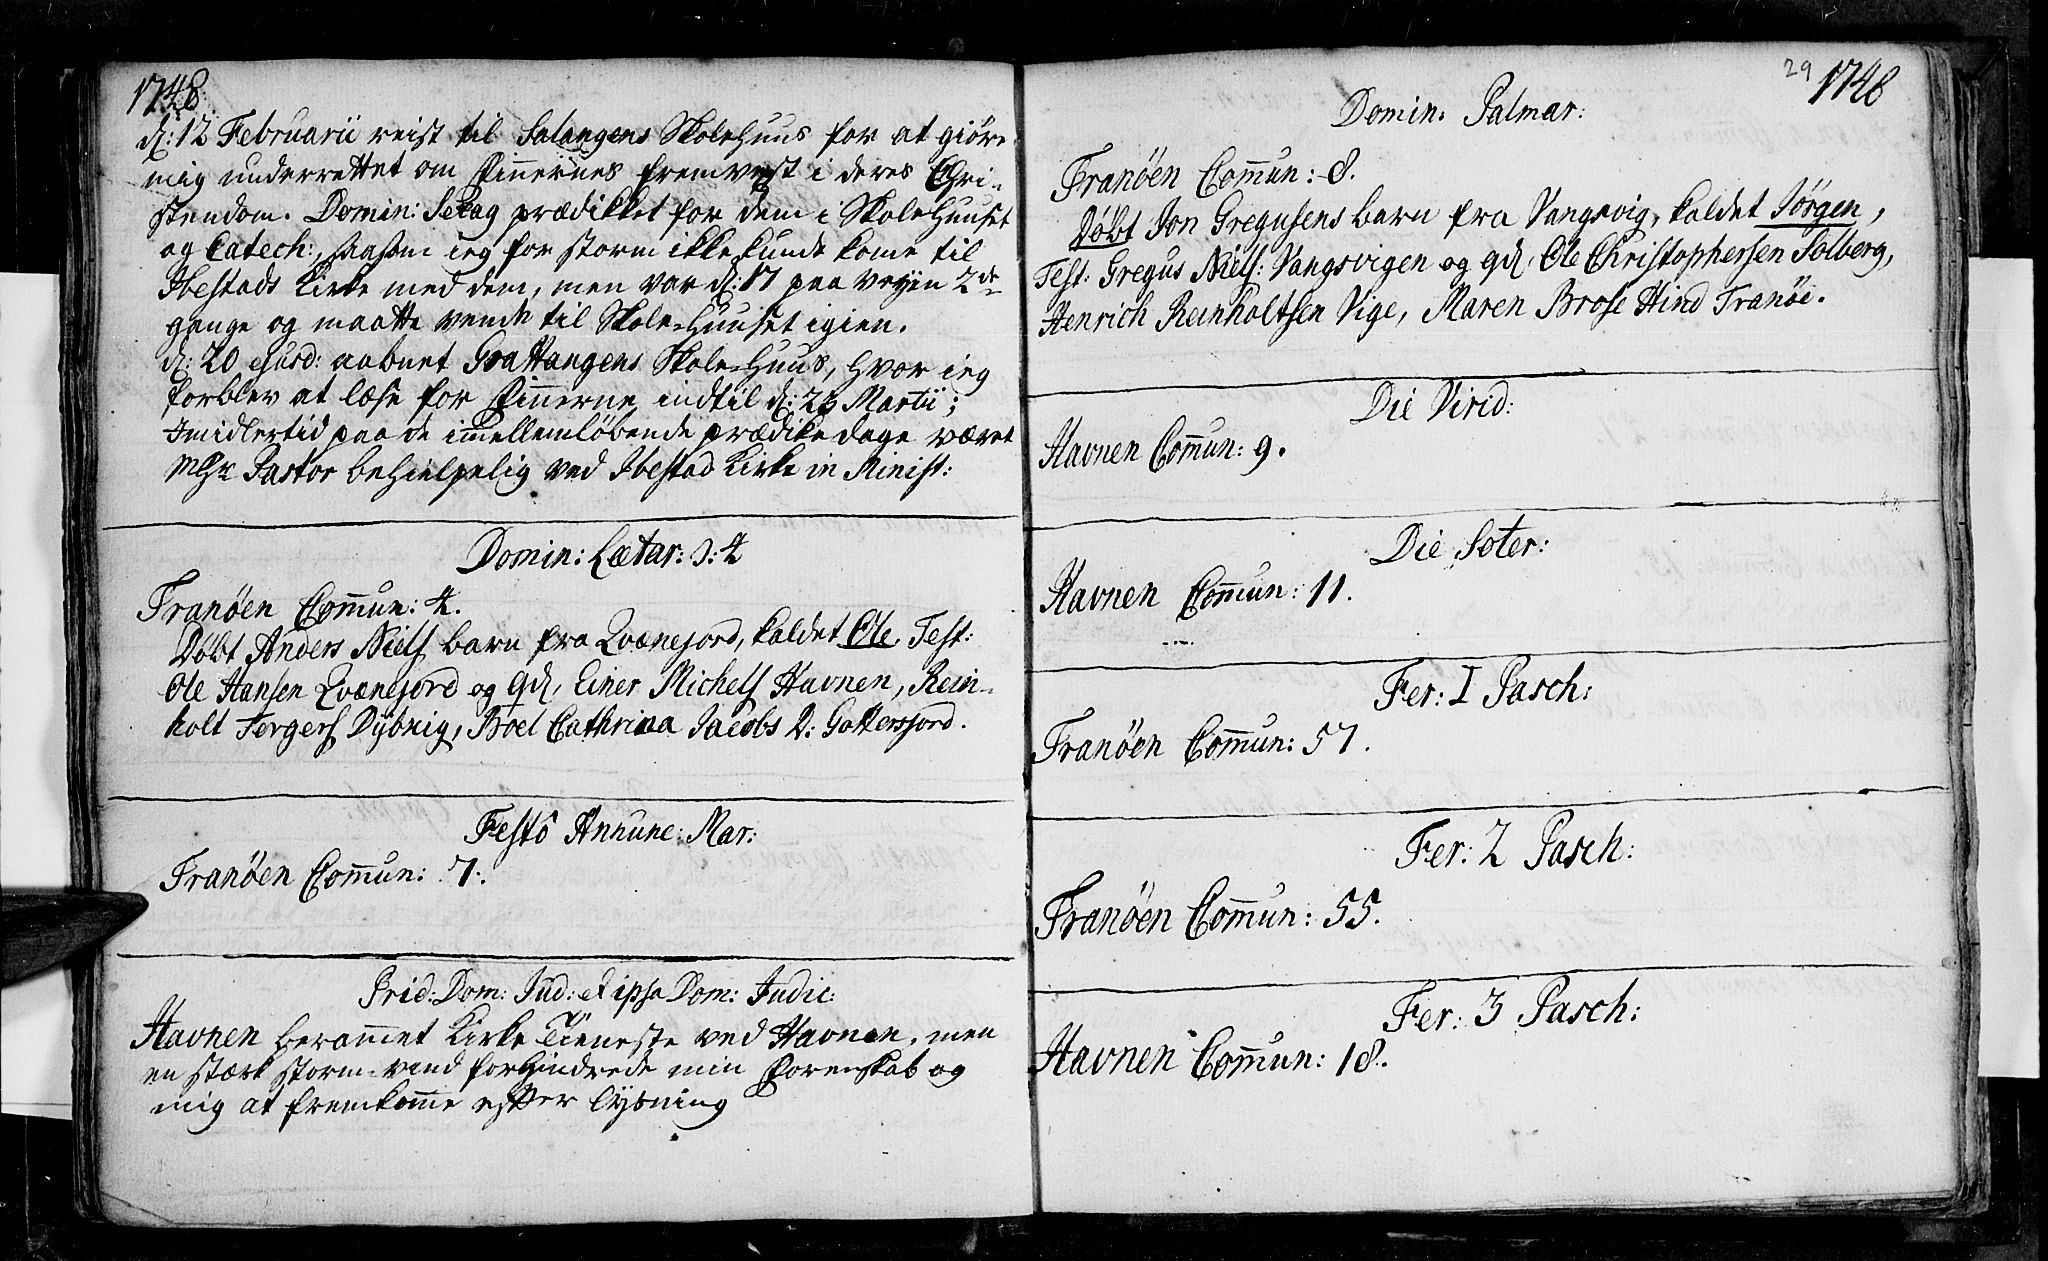 1748
d: 12 Februarii reist til Salangens SkoleHuus for at giöre
mig underrettet om Finnernes fremvext i deres Chri-
stendom. Domin: Sexag prædikket for dem i SkoleHuuset
og Catech:, saasom ieg for storm ikke kunde kome til
Ibestads Kirke med dem, men var d: 17 paa veyen 2de
gange og maatte vende til Skole-Huuset igien.
d: 20 ejusd: aabnet Grattangens Skole-Huus, hvor ieg
forblev at læse for Finnerne indtil d: 23 Martii;
Imidlertid paa de imellemlöbende prædike dage været
MHr Pastor behielpelig ved Ibestad Kirke in Minist:
Domin: Lætar: d: 4
Tranöen Comun: 4.
Döbt Anders Niels barn fra Qvænefiord, kaldet Ole. Test:
Ole Hansen Qvænefiord og qd, Einer Michels Havnen, Rein-
holt Torgers Dybvig, Boel Cathrina Jacobs D: Gottersfiord.
Festô Annunc: Mar:
Tranöen Comun: 7.
Prid: Dom: Jud: et ipsa Dom: Judic:
Havnen berammet Kirke Tieneste ved Havnen, men
en stærk storm-vend forhindrede min Forenskab og
mig at fremkomme efter lysning
29 1748
Domin. Palmar:
Tranöen Comun: 8.
Döbt Jon Gregusens barn fra Vangsvig, kaldet Jörgen,
Test: Gregus Niels: Vangsvigen og qd, Ole Christophersen Solberg,
Henrich Reinholtsen Vige, Maren Brose Hind Tranöe.
Die Virid:
Havnen Comun: 9.
Die Soter:
Havnen Comun: 11.
Fer: 1 Pasch:
Tranöen Comun: 57.
Fer: 2 Pasch:
Tranöen Comun: 55.
Fer: 3 Pasch:
Havnen Comun: 18.